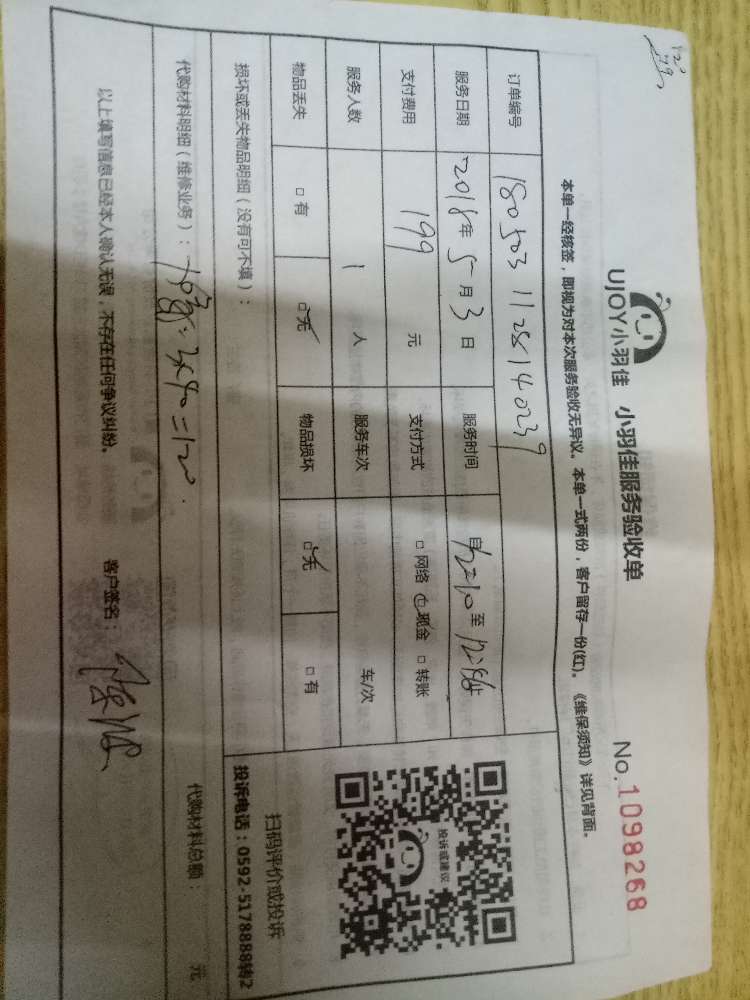 UJOY小羽佳 小羽佳服务验收单
No.1098268
本单一经核签，即视为对本次服务验收无异议。本单一式两份，客户留存一份(红)。《维保须知》详见背面。
订单编号 1805031128140239
服务日期 2018年5月3日 服务时间 自12:10至12:
支付费用 199元 支付方式 □网络 □现金 □转账
服务人数 1人 服务车次 车/次
物品丢失 □有 □无 物品损坏 □无 □有
损坏或丢失物品明细（没有可不填）：
代购材料明细（维修业务）： =120. 代购材料总额： 元
以上填写信息已经本人确认无误，不存在任何争议纠纷。 客户签名：
投诉或建议
扫码评价或投诉
投诉电话：0592-5178888转2